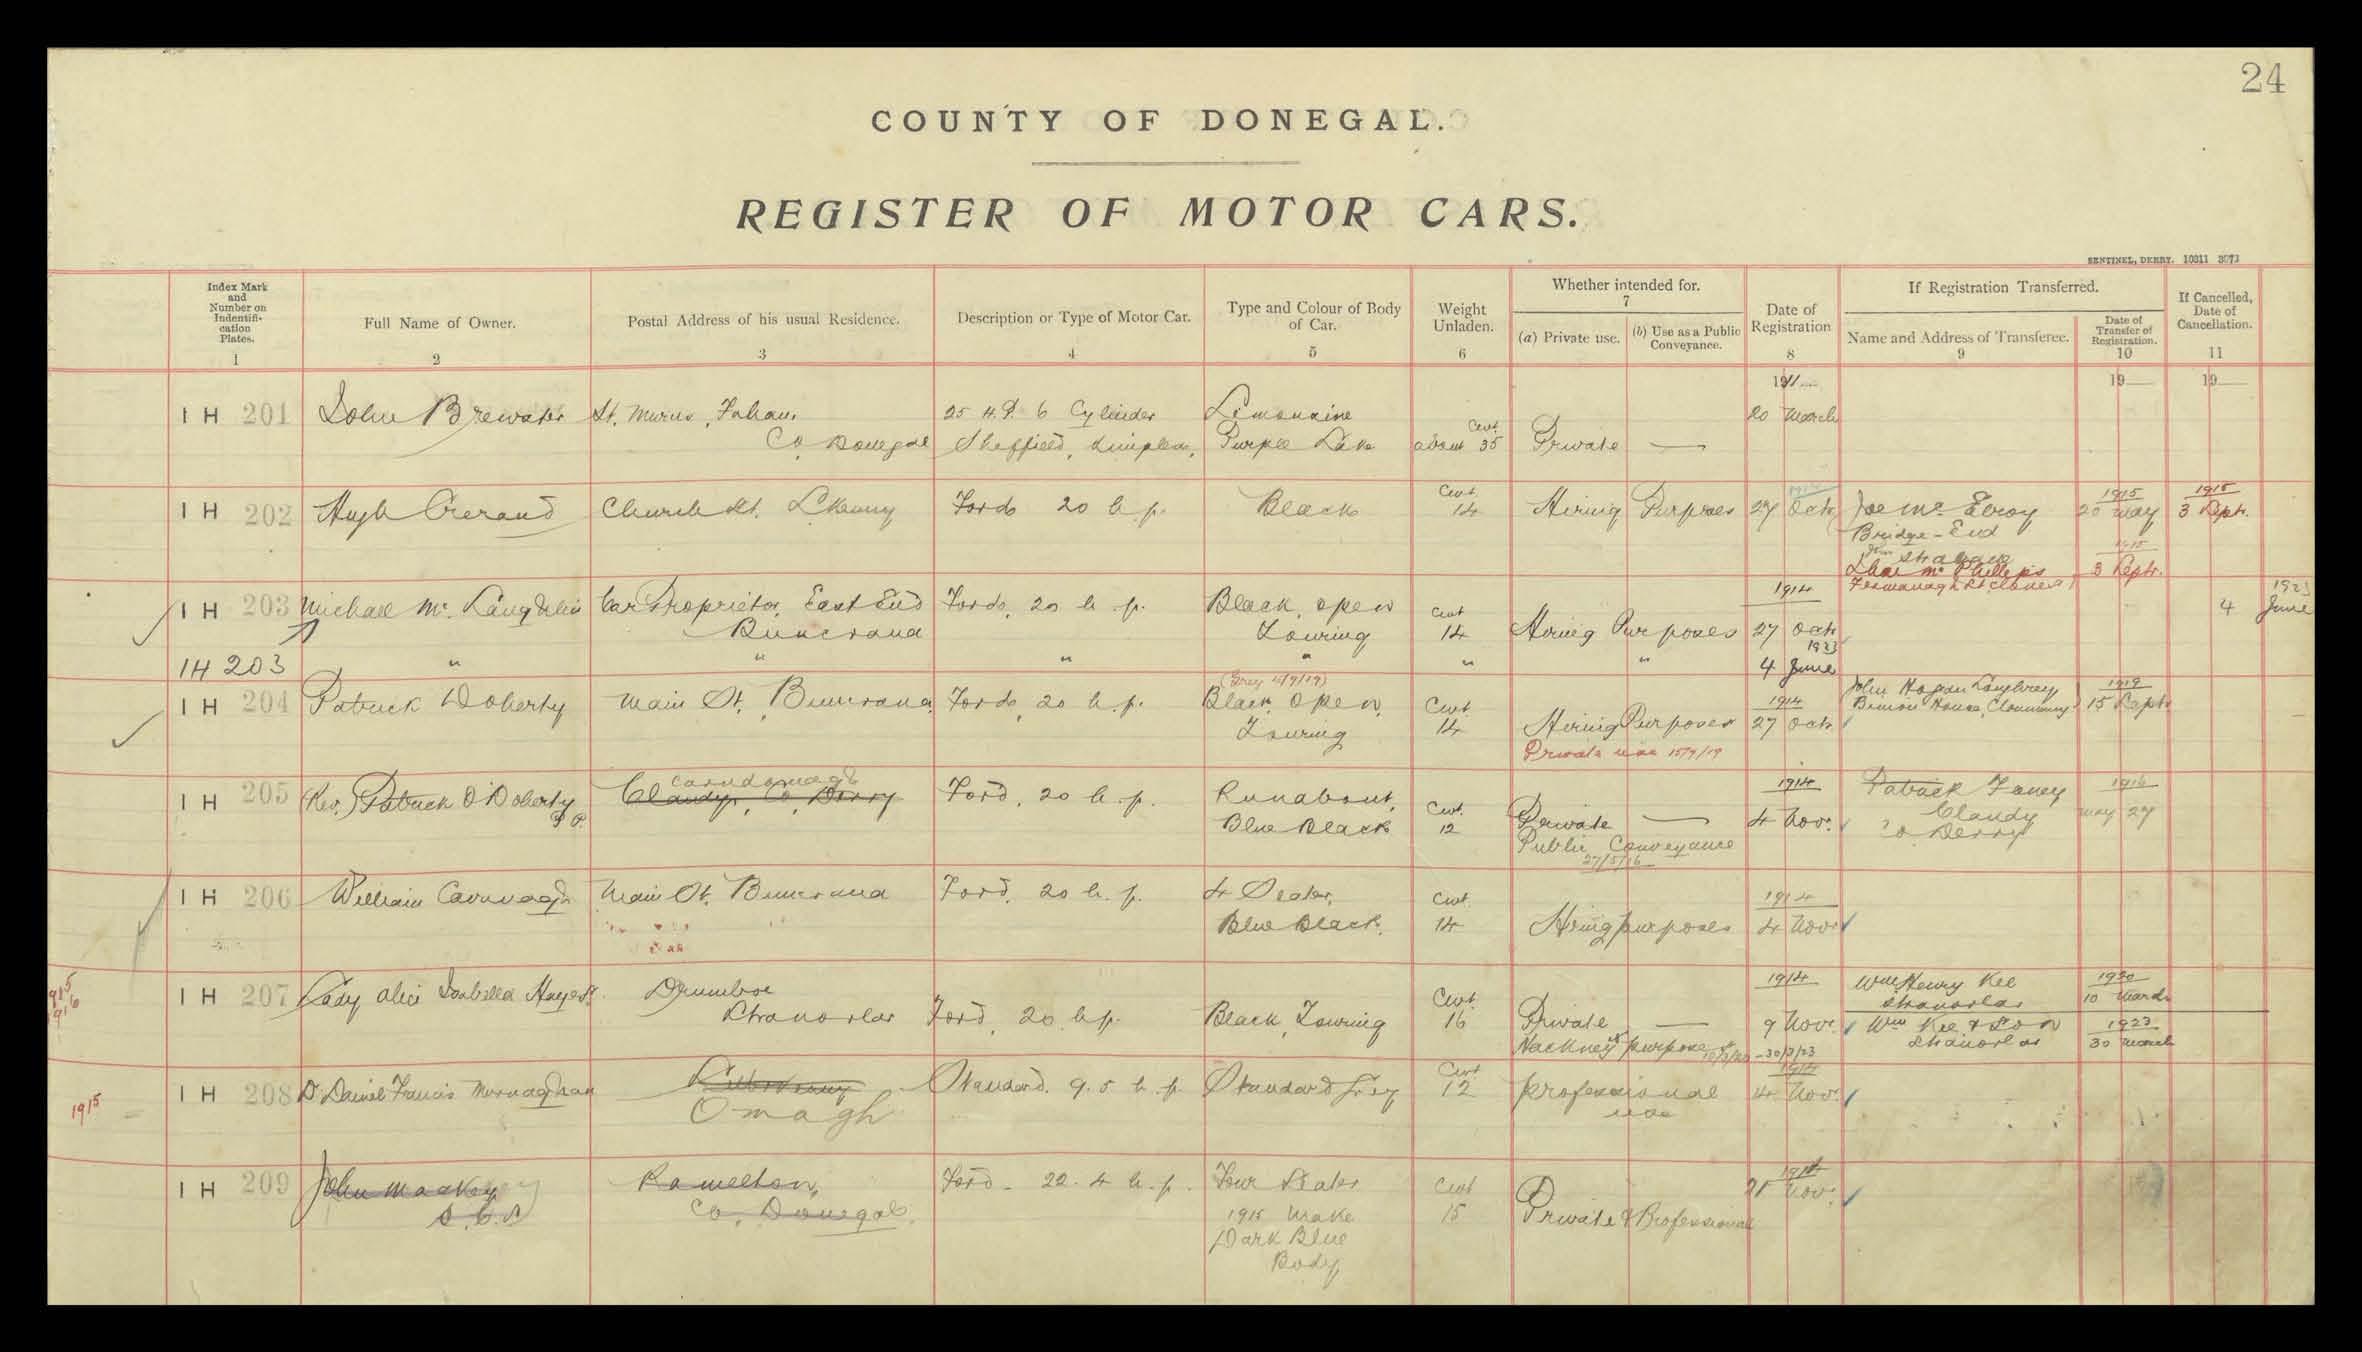 24
COUNTY OF DONEGAL.
REGISTER OF MOTOR CARS.
SENTINEL, DERRY. 10311 3973
Index Mark and Number on Indentifi-cation Plates.
1
Full Name of Owner.
2
Postal Address of his usual Residence.
3
Description or Type of Motor Car.
4
Type and Colour of Body of Car.
5
Weight Unladen.
6
Whether intended for.
7
(a) Private use.
(b) Use as a Public Conveyance.
Date of Registration
8
If Registration Transferred.
Name and Address of Transferee.
9
Date of Transfer of Registration.
10
If Cancelled, Date of Cancellation.
11
1911
19
19
IH 201 John Brewster St. Murus, Fahan, 25 H.P. 6 Cylinder Limousine 20 March
Co Donegal Sheffield, Simplex, Purple Lake Cwt. about 35 Private —
IH 202 Hugh Crerand Church St. LKenny Ford 20 h.p. Black Cwt. 14 Hiring Purposes 27 Oct 1914 Joe Mc Elroy 1915 20 May 1915 3 Sept.
Bridge-End
Strabane
Mc Phillips 1915 3 Sept.
Fermanagh St Clones
IH 203 Michael Mc Laughlin Car Proprietor, East End Ford, 20 h.p. Black, open 1914 4 June 1923
Buncrana Touring Cwt 14 Hiring Purposes 27 Oct
IH 203 " " " " " " 1923 4 June
IH 204 Patrick Doherty Main St, Buncrana, Ford, 20 h.p. (Grey 15/9/19) Black, open, John Hogan Loughrey 1919
Touring Cwt. 14 Hiring Purposes 1914 27 Oct Binion House, Clonmany 15 Sept
Private use 15/9/19
IH 205 (Rev.) Patrick O'Doherty P.P. Carndonagh Ford, 20 h.p. Runabout, 1914 Patrick Faney 1916
Claudy, Co, Derry Blue Black Cwt. 12 Private — 4 Nov. Claudy May 27
Public Conveyance Co Derry
27/5/16
IH 206 William Cavanagh Main St, Buncrana Ford, 20 h.p. 4 Seater, Cwt. 1914
Blue Black. 14 Hiring purposes 4 Nov
1915
1916
IH 207 Lady Alice Isabella Hayes Drumboe 1914 Wm Henry Kee 1920
Stranorlar Ford, 20 h.p. Black, Touring Cwt. 16 Private — 9 Nov. Stranorlar 10 March
Hackney purpose -30/3/23 Wm Kee & Son 1923
Stranorlar 30 March
1915
IH 208 Dr Daniel Francis Monaghan Letterkenny Standard. 9.5 h.p. Standard Grey Cwt 12 professional 1914 4 Nov.
Omagh use
IH 209 John Mackey Ramelton, Ford - 22.4 h.p. Four Seater Cwt 1914 21 Nov.
Co, Donegal. 1915 Make 15 Private & Professional
Dark Blue
Body